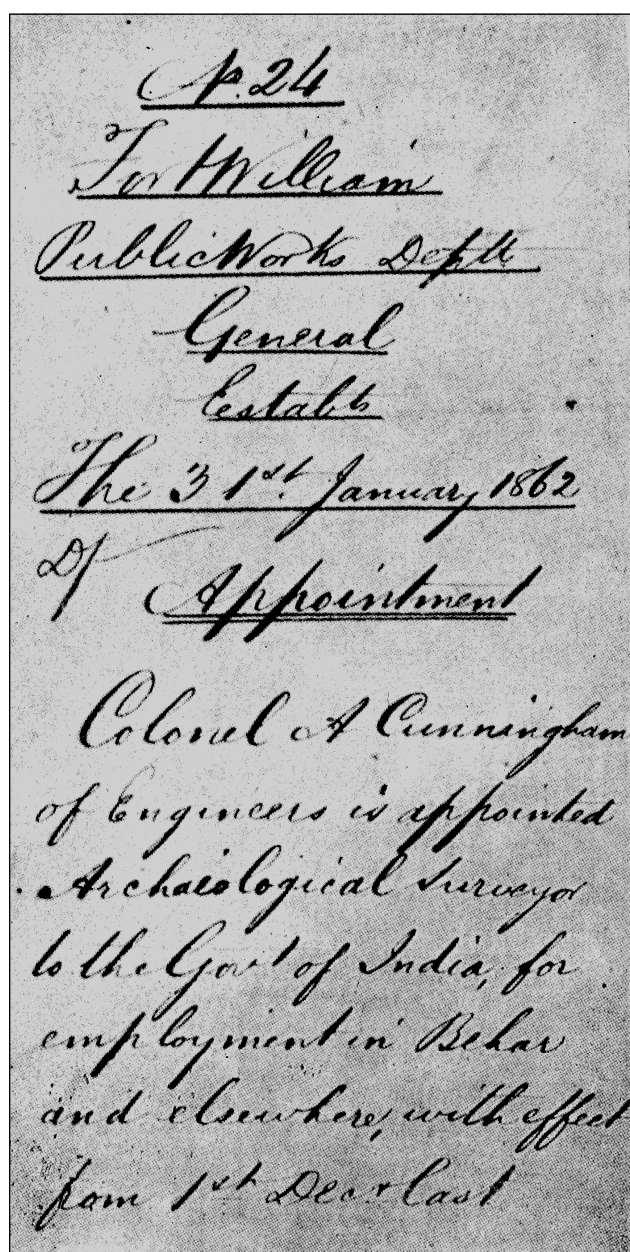 No. 24
Fort William
Public Works Deptt.
General
Establt
The 31st. January 1862
D/
Appointment
Colonel A Cunningham
of Engineers is appointed
Archaeological Surveyor
to the Govt of India, for
employment in Behar
and elsewhere, with effect
from 1st Decr last